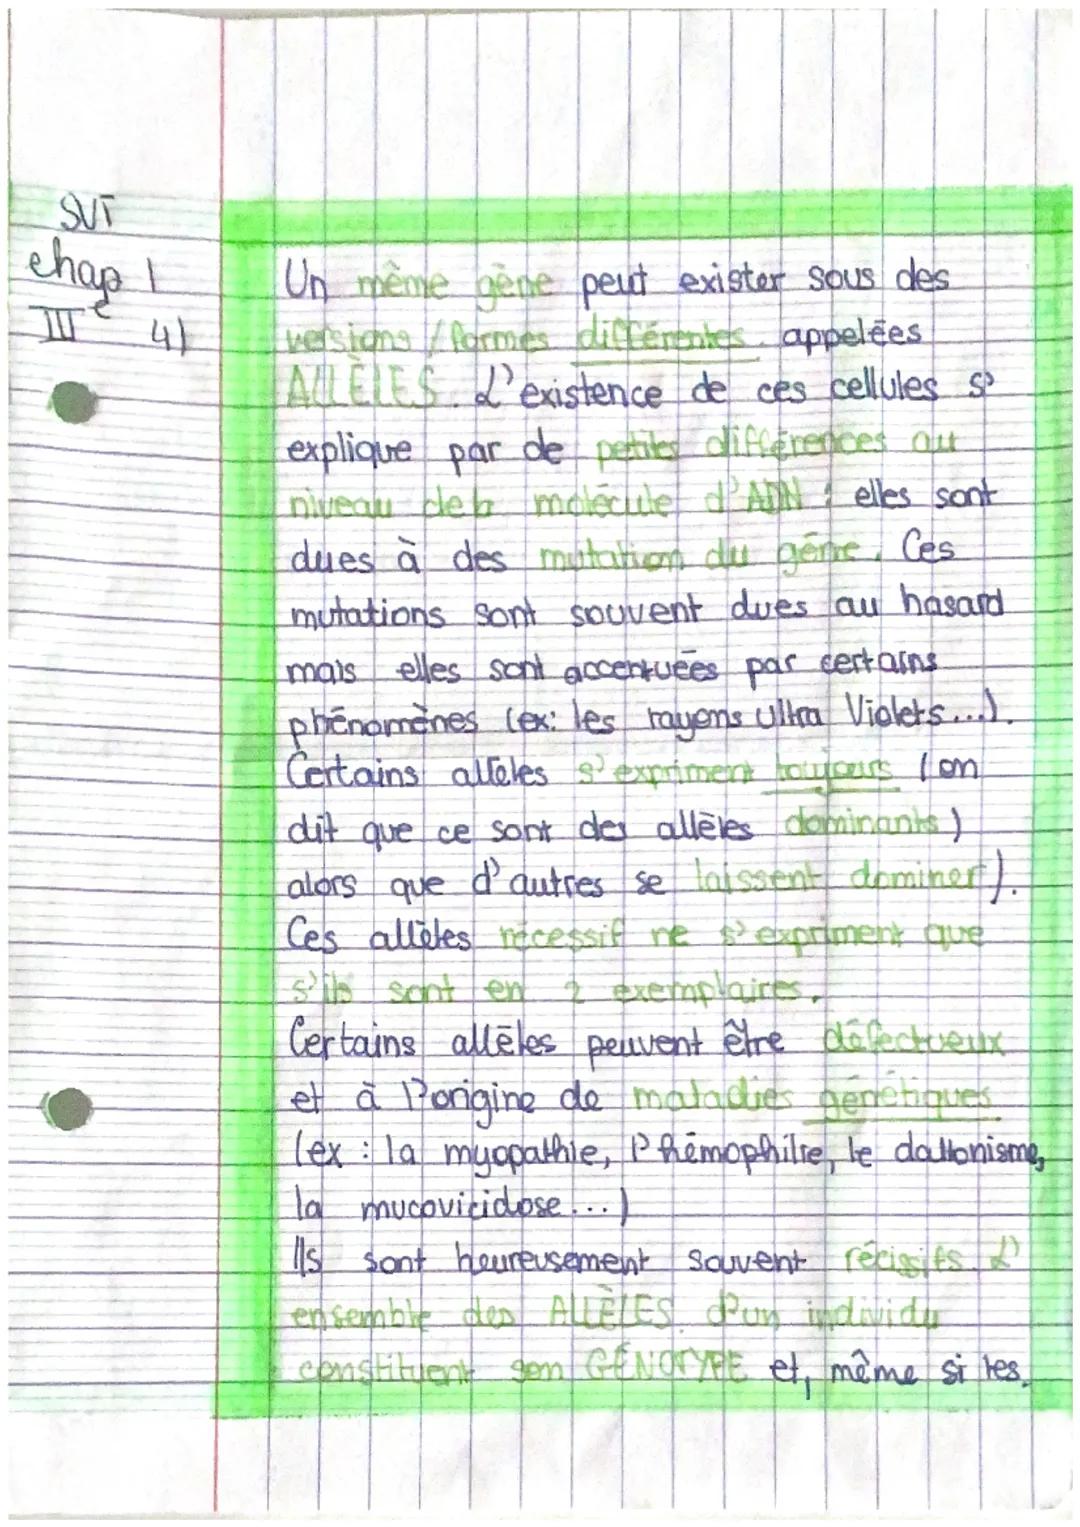 SVT
chap 1
IIIe 4)
Un même gène peut exister sous des
versions / formes différentes appelées
ALLÈLES. L'existence de ces cellules s'
explique par de petites différences au
niveau de la molécule d'ADN : elles sont
dues à des mutation du gène. Ces
mutations sont souvent dues au hasard
mais elles sont accentuées par certains
phénomènes (ex: les rayons Ultra Violets...).
Certains allèles s'expriment toujours (on
dit que ce sont des allèles dominants)
alors que d'autres se laissent dominer).
Ces allèles récessif ne s'expriment que
s'ils sont en 2 exemplaires.
Certains allèles peuvent être défectueux
et à l'origine de maladies génétiques
(ex : la myopathie, l'hémophilie, le daltonisme,
la mucovicidose...)
Ils sont heureusement souvent récissifs. L'
ensemble des ALLÈLES d'un individu
constituent son GÉNOTYPE et, même si les